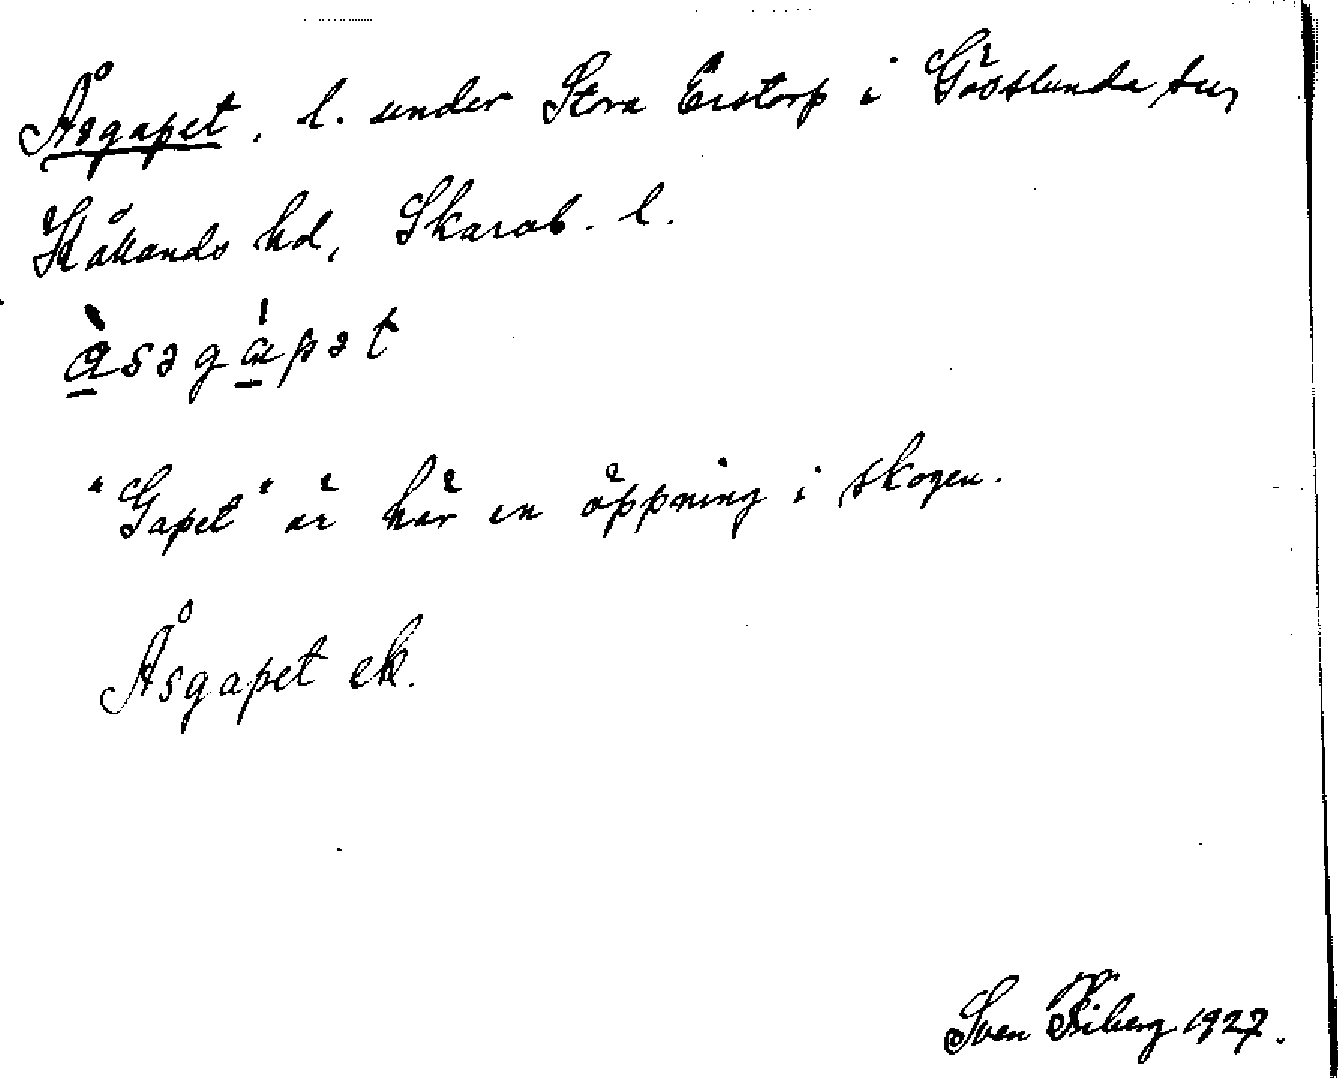 Åsgapet, l. under Stora Erstorp i Gösslunda sn,
Kållands hd, Skarab. l.
åsəgápət
"Gapet" är här en öppning i skogen.
Åsgapet ek.
Sven 1927.